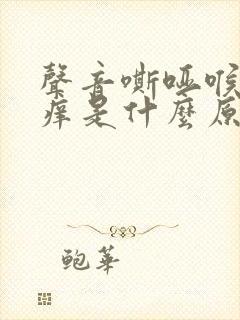 聲音嘶啞喉
痒是什麼原
鲍華